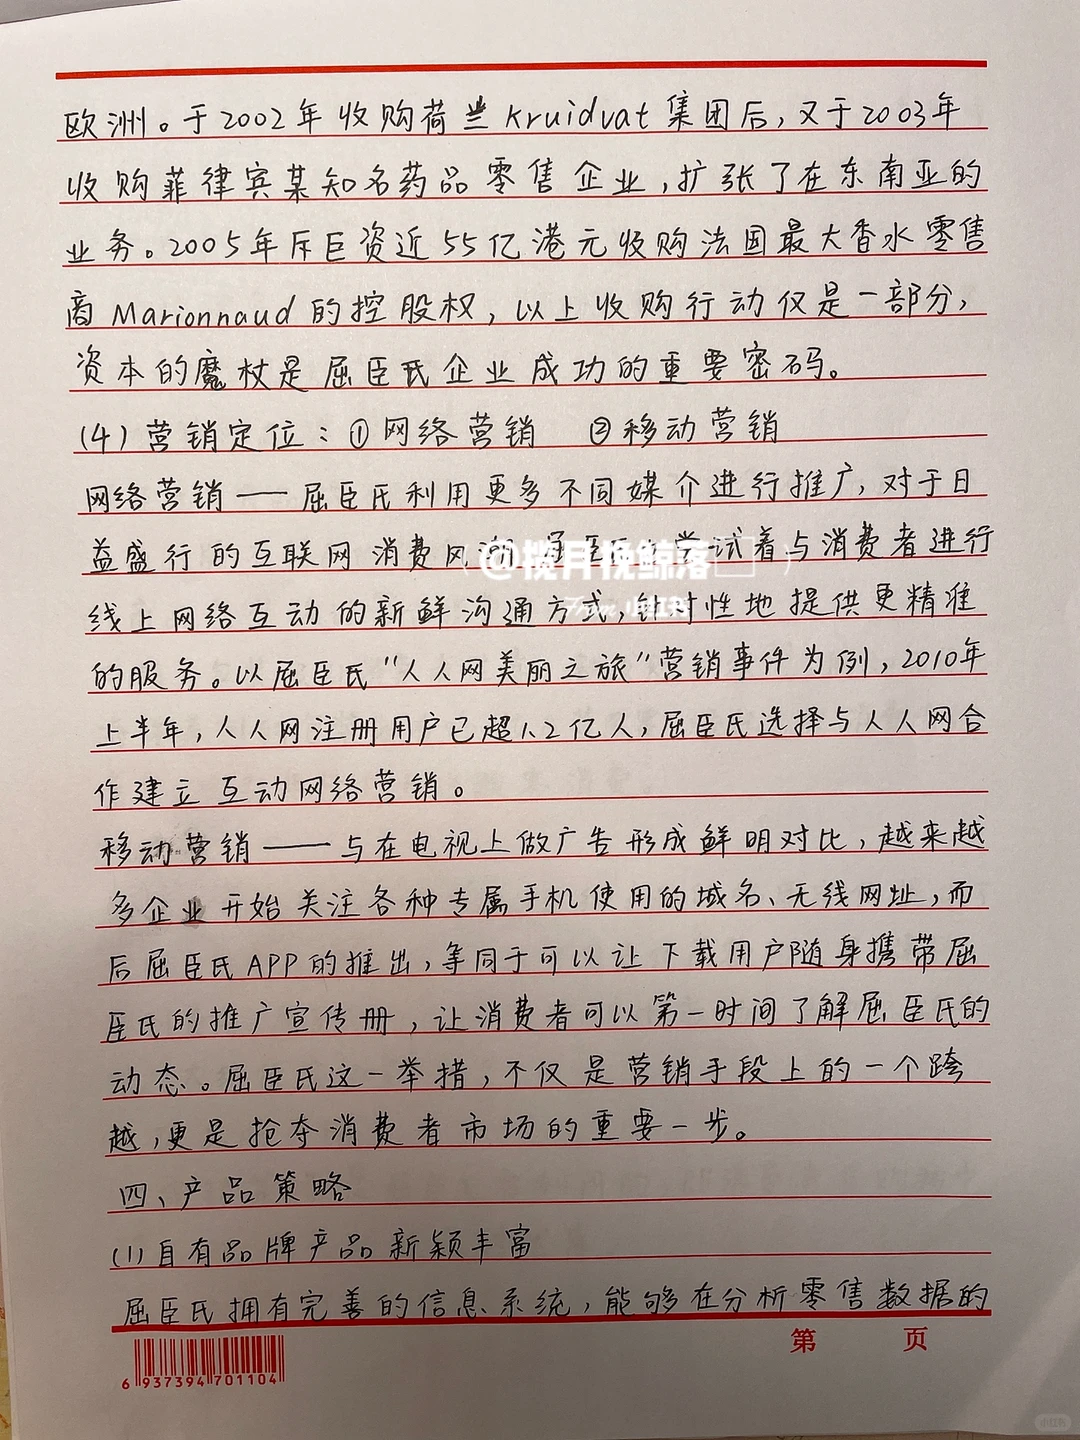 欧洲。于2002年收购荷兰Kruidvat集团后，又于2003年
收购菲律宾某知名药品零售企业，扩张了在东南亚的
业务。2005年斥巨资近55亿港元收购法国最大香水零售
商Marionnaud的控股权，以上收购行动仅是一部分，
资本的魔杖是屈臣氏企业成功的重要密码。
(4)营销定位：①网络营销 ②移动营销
网络营销——屈臣氏利用更多不同媒介进行推广，对于日
益盛行的互联网消费风 试着与消费者进行
@揽月挽鲸落
线上网络互动的新鲜沟通方式，针对性地提供更精准
From 小红书
的服务。以屈臣氏"人人网美丽之旅"营销事件为例，2010年
上半年，人人网注册用户已超1.2亿人，屈臣氏选择与人人网合
作建立互动网络营销。
移动营销——与在电视上做广告形成鲜明对比，越来越
多企业开始关注各种专属手机使用的域名、无线网址，而
后屈臣氏APP的推出，等同于可以让下载用户随身携带屈
臣氏的推广宣传册，让消费者可以第一时间了解屈臣氏的
动态。屈臣氏这一举措，不仅是营销手段上的一个跨
越，更是抢夺消费者市场的重要一步。
四、产品策略
(1)自有品牌产品新颖丰富
屈臣氏拥有完善的信息系统，能够在分析零售数据的
第 页
6 937394 701104
小红书